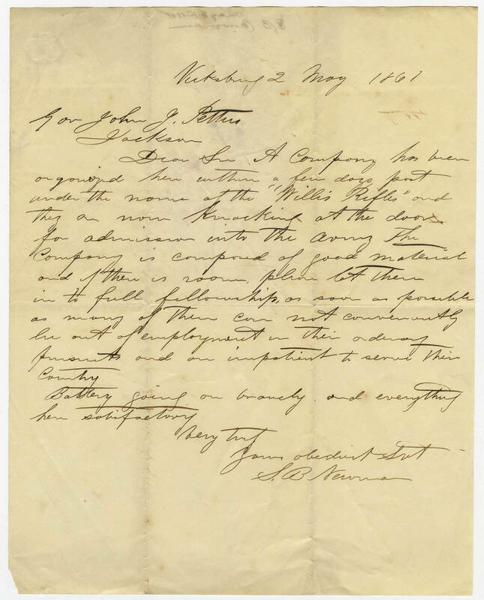 Vicksburg 2 May 1861
Gov John J. Pettus
Jackson
Dear Sir A Company has been
organized here within a few days past
under the name of the "Willis Rifles" and
they are now knocking at the door
for admission into the Army The
Company is composed of good material
and if there is room, please let them
in to full fellowship, as soon as possible
as many of them can not conveniently
be out of employment in their ordinary
pursuits and are impatient to serve their
Country
Battery going on bravely. and everything
here satisfactory
Very truly
Your obedient Svt
S. B. Newman